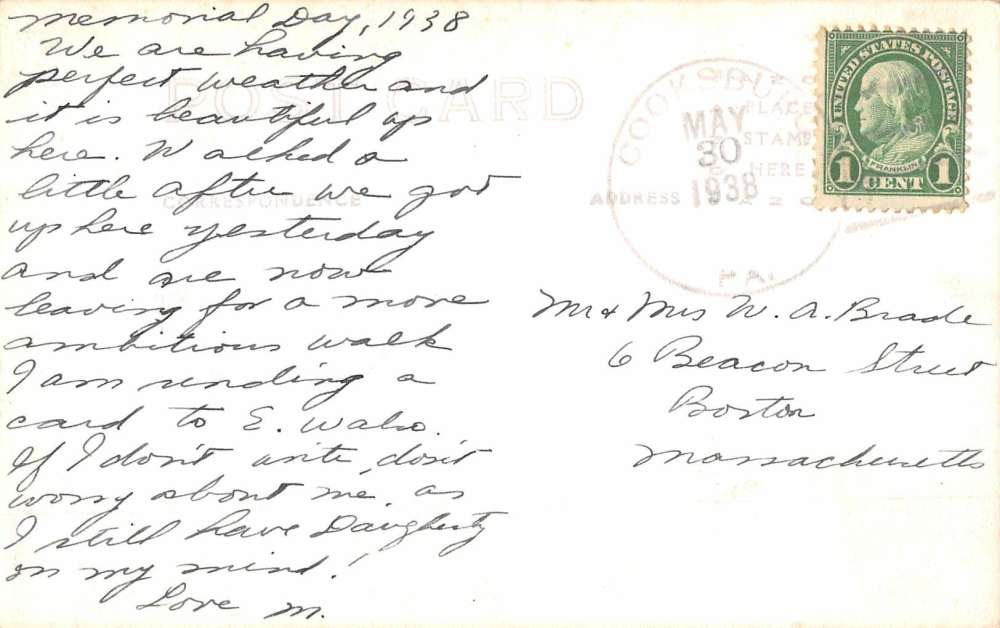 Memorial Day, 1938
We are having
perfect weather and
it is beautiful up
here. Walked a
little after we got
up here yesterday
and are now
leaving for a more
ambitious walk
I am sending a
card to E. Walso.
If I don't write, don't
worry about me, as
I still have Daugherty
on my mind!
Love M.
POST CARD
CORRESPONDENCE
ADDRESS
PLACE
STAMP
HERE
COOKSBURG
MAY
30
1938
PA.
UNITED STATES POSTAGE
FRANKLIN
1 CENT 1
Mr & Mrs W. A. Brade
6 Beacon Street
Boston
Massachusetts